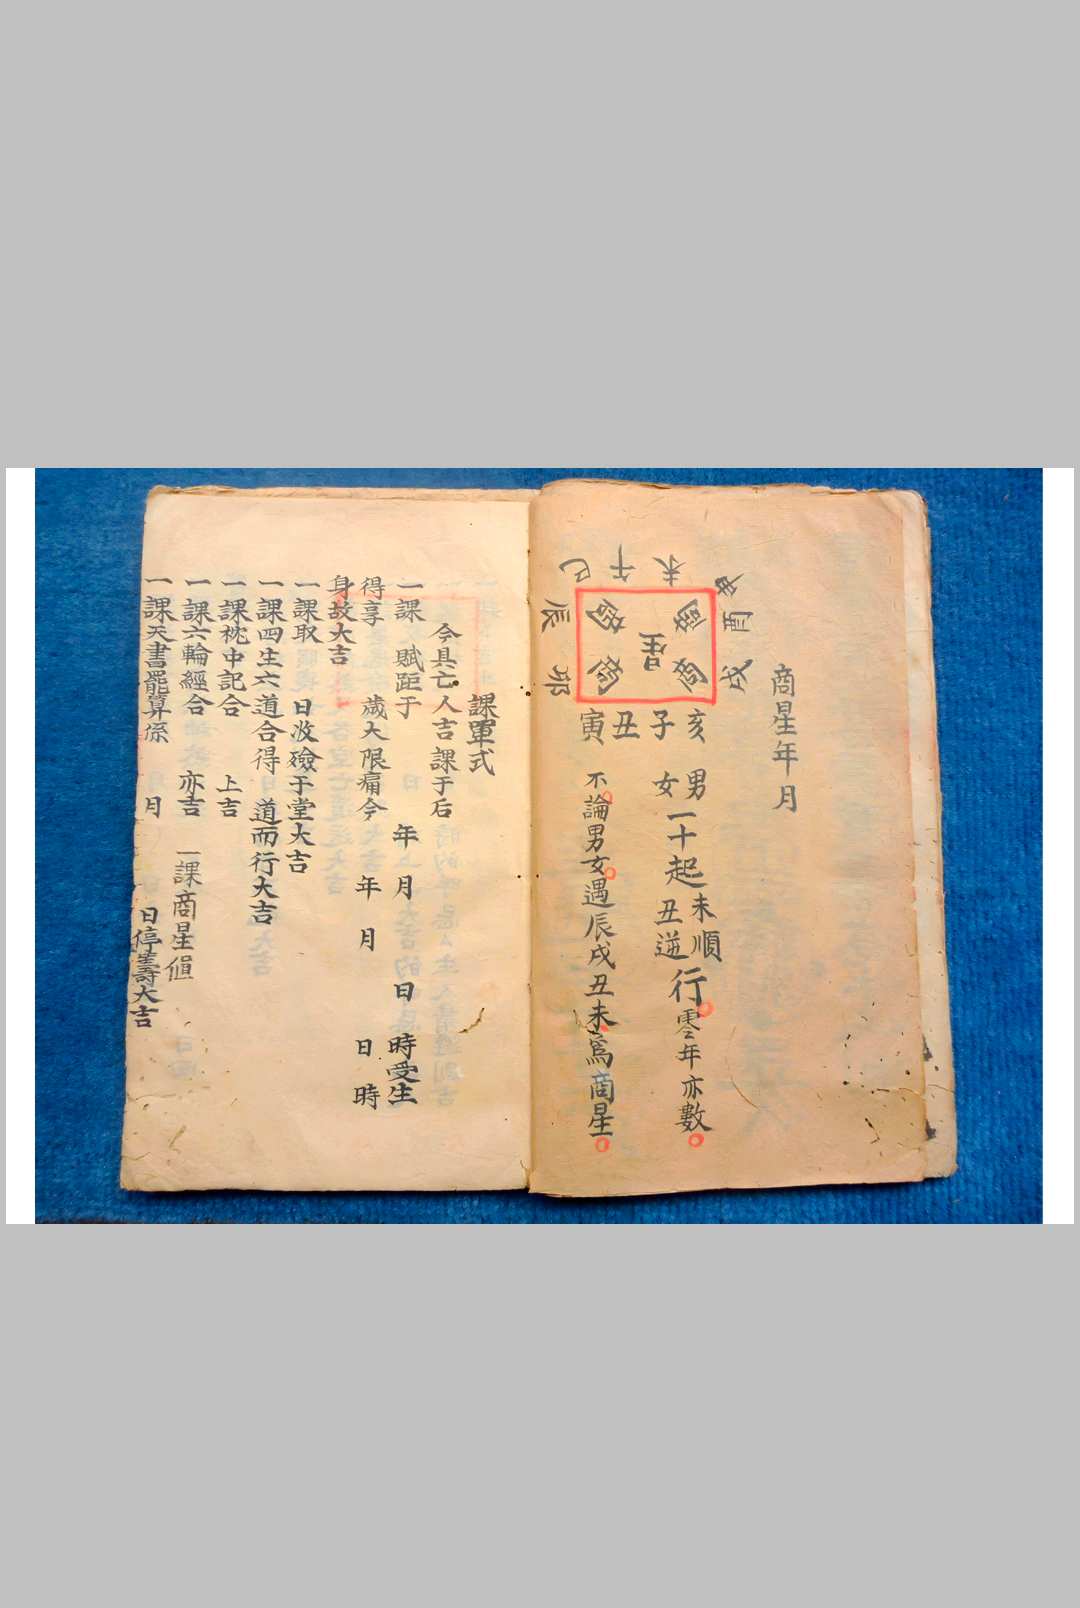 商星年月
巳午未申
辰酉
卯戌
寅丑子亥
商商商商
星
男女一十起未順丑逆行零年亦數
不論男女遇辰戌丑未為商星
課單式
今具亡人吉課于后
一課 賦距于 年 月 日 時受生
得享 歲大限痛今 年 月 日 時
身故大吉
一課取 日收殮于堂大吉
一課四生六道合得 道而行大吉
一課枕中記合 上吉
一課六輪經合 亦吉 一課商星值
一課天書罷算係 月 日停壽大吉